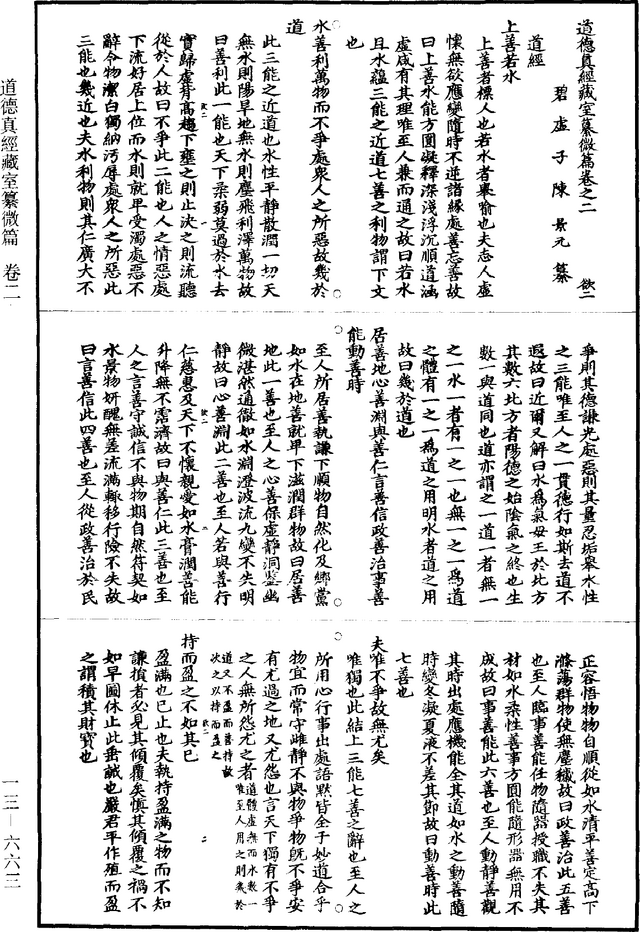 道德真經藏室纂微篇卷之二
碧虛子陳景元纂 欲二
道經
上善若水
上善者標人也若水者舉喻也夫志人虛
懷無欲應變隨時不逆諸緣處善忘善故
曰上善水能方圓凝釋深淺浮沉順道涵
虛咸有其理唯至人兼而通之故曰若水
且水蘊三能之近道七善之利物謂下文
也
水善利萬物而不爭處衆人之所惡故幾於
道
此三能之近道也水性平靜散潤一切天
無水則陽旱地無水則塵飛利澤萬物故
曰善利此一能也天下柔弱莫過於水去
實歸虛背高趨下壅之則止決之則流聽
從於人故曰不爭此二能也人之情惡處
下流好居上位而水則就卑受濁處惡不
辭令物潔白獨納污辱處衆人之所惡此
三能也幾近也夫水利物則其仁廣大不
爭則其德謙光處惡則其量忍垢舉水性
之三能唯至人之一貫德行如斯去道不
遐故曰近爾又解曰水爲氣母王於北方
其數六北方者陽德之始陰氣之終也生
數一與道同也道亦謂之一道一者無一
之一水一者有一之一也無一之一爲道
之體有一之一爲道之用明水者道之用
故曰幾於道也
居善地心善淵與善仁言善信政善治事善
能動善時
至人所居善執謙下順物自然化及鄉黨
如水在地善就卑下滋潤群物故曰居善
地此一善也至人之心善保虛靜洞鑒幽
微湛然通徹如水淵澄波流九變不失明
靜故曰心善淵此二善也至人若與善行
仁慈惠及天下不懷親愛如水膏潤善能
升降無不霑濟故曰與善仁此三善也至
人之言善守誠信不與物期自然符契如
水景物妍醜無差流滿轍移行險不失故
曰言善信此四善也至人從政善治於民
正容悟物物自順從如水清平善定高下
滌蕩群物使無塵穢故曰政善治此五善
也至人臨事善能任物隨器授職不失其
材如水柔性善事方圓能隨形器無用不
成故曰事善能此六善也至人動靜善觀
其時出處應機能全其道如水之動善隨
時變冬凝夏液不差其節故曰動善時此
七善也
夫唯不爭故無尤矣
唯獨也此結上三能七善之辭也至人之
所用心行事出處語默皆全于妙道合乎
物宜而常守雌靜不與物爭物旣不爭安
有尤過之地又尤怨也言天下獨有不爭
之人無所怨尤之者道體虛無而水數一唯至人用之則幾於
道又不盈而善持故次之以持而盈之
持而盈之不如其已
盈滿也已止也夫執持盈滿之物而不知
謙損者必見其傾覆矣慎其傾覆之禍不
如早圖休止此垂誡也嚴君平作殖而盈
之謂積其財寶也
道德真經藏室纂微篇 卷二
一三—六六三